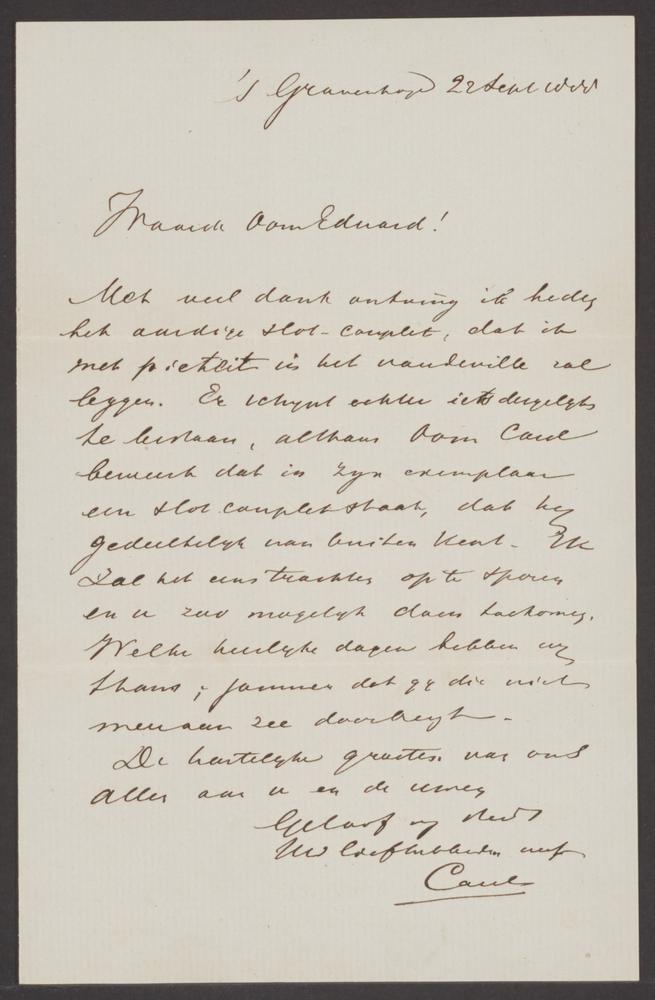 's Gravenhage 22 Sept 1888
Waarde Oom Eduard!
Met veel dank ontving ik heden
het aardige slot-couplet, dat ik
met piëteit in het vaudeville zal
leggen. Er schynt echter iets dergelyks
te bestaan, althans Oom Carel
bemerkt dat in zyn exemplaar
een slot couplet staat, dat hy
gedeeltelyk van buiten kent. Ik
zal het eens trachten op te sporen
en u zoo mogelyk doen toekomen.
Welke heerlyke dagen hebben wy
thans; jammer dat gy die niet
meer aan zee doorbrengt.
De hartelyke groeten van ons
allen aan u en de uwen
Geloof my steeds
Uw liefhebbenden neef
Carel